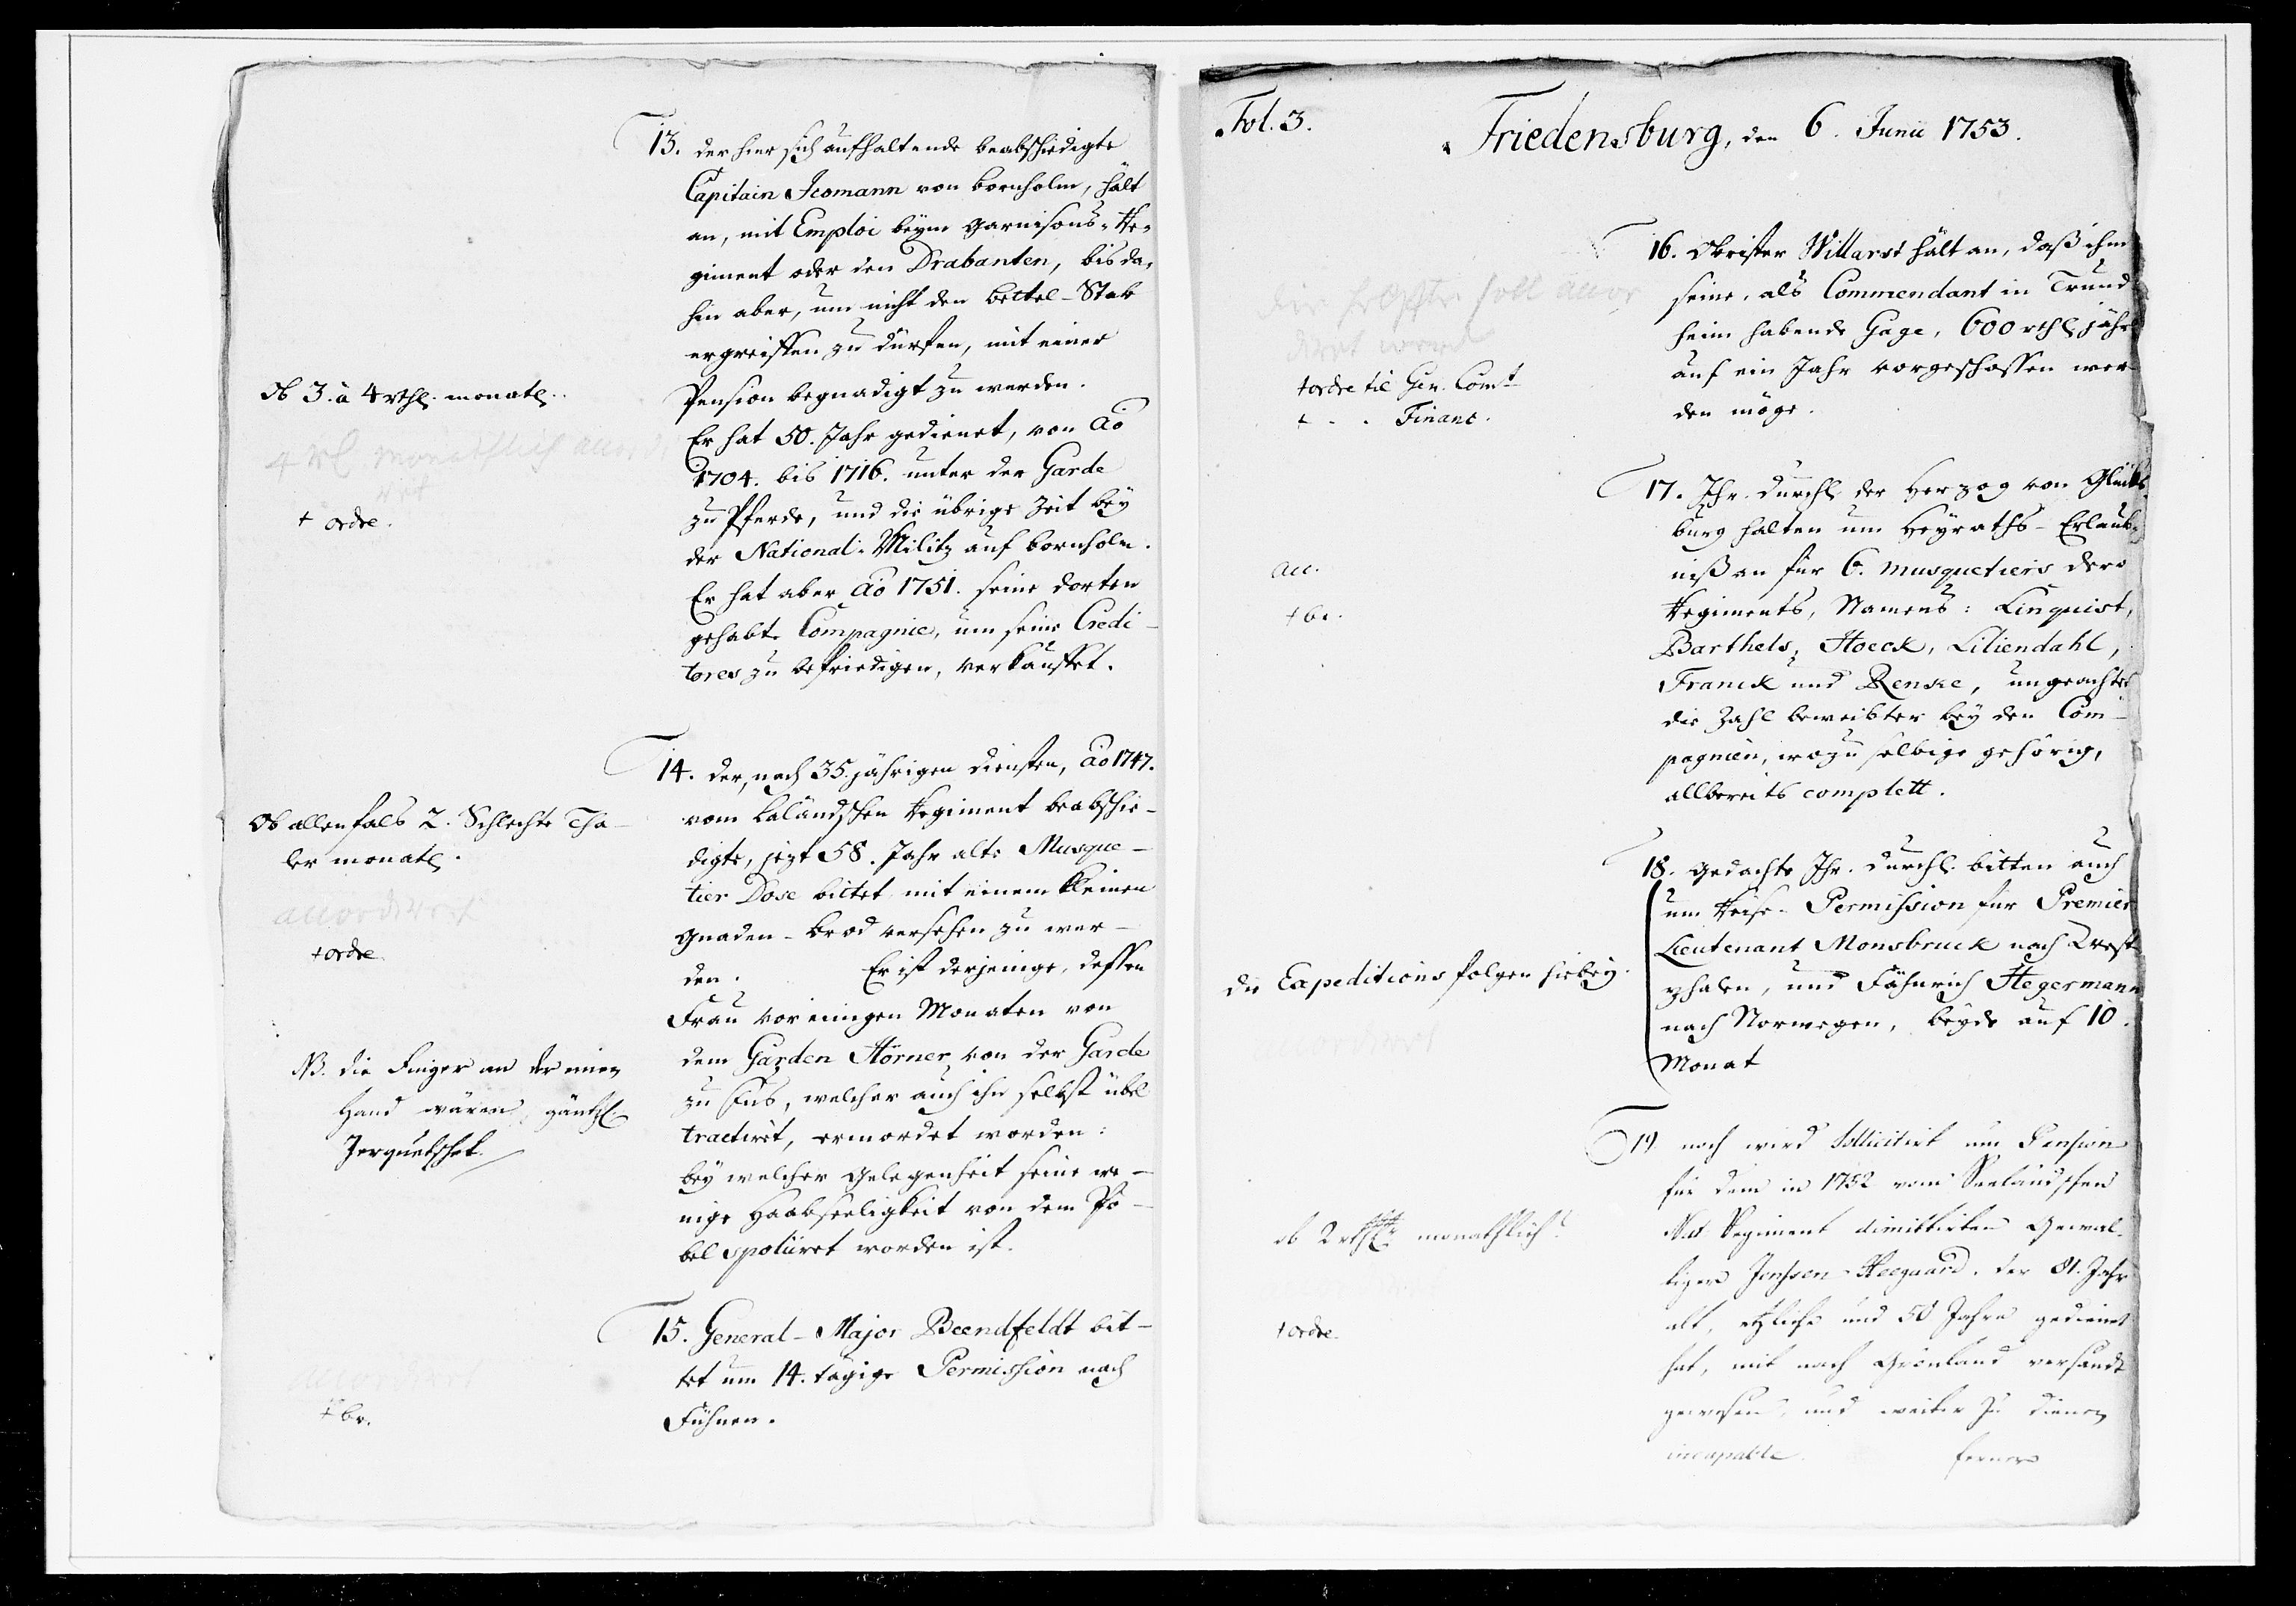 13. der hier sich aufhaltende beabschiedigte
Capitain Icomann von Bornholm, hält
an, mit Emploi beym Garnisons-Re-
giment oder den Drabanten, bis da-
hin aber, um nicht den Bettel-Stab
ergreiffen zu dürfen, mit einer
Pension begnadigt zu werden.
Er hat 50. Jahr gedienet, von Ao
1704. bis 1716. unter der Garde
zu Pferde, und die übrige Zeit bey
der National-Militz auf Bornholm.
Er hat aber Ao 1751. seine dorten
gehabte Compagnie, um seine Credi-
tores zu befriedigen, verkauffet.
Ob 3. à 4 rthl. monatl.
4 rl monathlich accordi
ret
+ ordre.
14. der, nach 35. jährigen diensten, Ao 1747.
vom Laländschen Regiment beabschie-
digte, jezt 58. Jahr alte Musque-
tier Dose bittet mit einem kleinen
Gnaden-Brod versehen zu wer-
den. Er ist derjenige, dessen
Frau vor einigen Monaten von
dem Garden Hörner von der Garde
zu Fus, welcher auch ihn selbst übel
tractiret, ermordet worden:
bey welcher Gelegenheit seine we-
nige Haabseeligkeit von dem Pö-
bel spoliiret worden ist.
Ob allenfals 2. Schlechte Tha-
ler monatl.
accordiret
+ ordre
NB. die Finger an der einen
Hand wären gäntzl.
Zerquetschet.
15. General-Major Beendfeldt bit-
tet um 14. tägige Permission nach
Fühnen.
accordiret
+ br.
Fol. 3.
Friedensburg, den 6. Junii 1753.
16. Obrister Willarst hält an, daß ihm
seine, als Commendant in Trund
heim habende Gage, 600 rthl. jährl
auf ein Jahr vorgeschossen wer-
den möge.
die helffte soll accor
diret werd
+ ordre til Gen. Comt
+ - - Financ.
17. Ihr. Durchl. der Herzog von Glücks-
burg halten um Heyraths-Erlaub-
niß an für 6. Musquetiers dero
Regiments, Namens: Linquist,
Barthels, Hoeck, Liliendahl,
Franck und Renske, ungeachtet
die Zahl beweibter bey den Com-
pagnien, wozu selbige gehörig,
allbereits complett.
acc.
+ br.
18. Gedachte Ihr. Durchl. bitten auch
um Reise-Permission für Premier
Lieutenant Monsbruck nach West-
phalen, und Fähnrich Hegermann
nach Norwegen, beyde auf 10.
Monat
die Expeditions folgen hiebey.
accordiret
19. noch wird sollicitirt um Pension
für dem in 1752 vom Seeländschen
Nat Regiment dimittirten Gewal-
tiger Jenssen Heegaard, der 81. Jahr
alt, etzliche und 50 Jahre gedienet
hat, mit nach Grönland versandt
gewesen, und weiter zu dienen
incapable. ferner
ob 2 rthlr monathlich?
+ ordre.